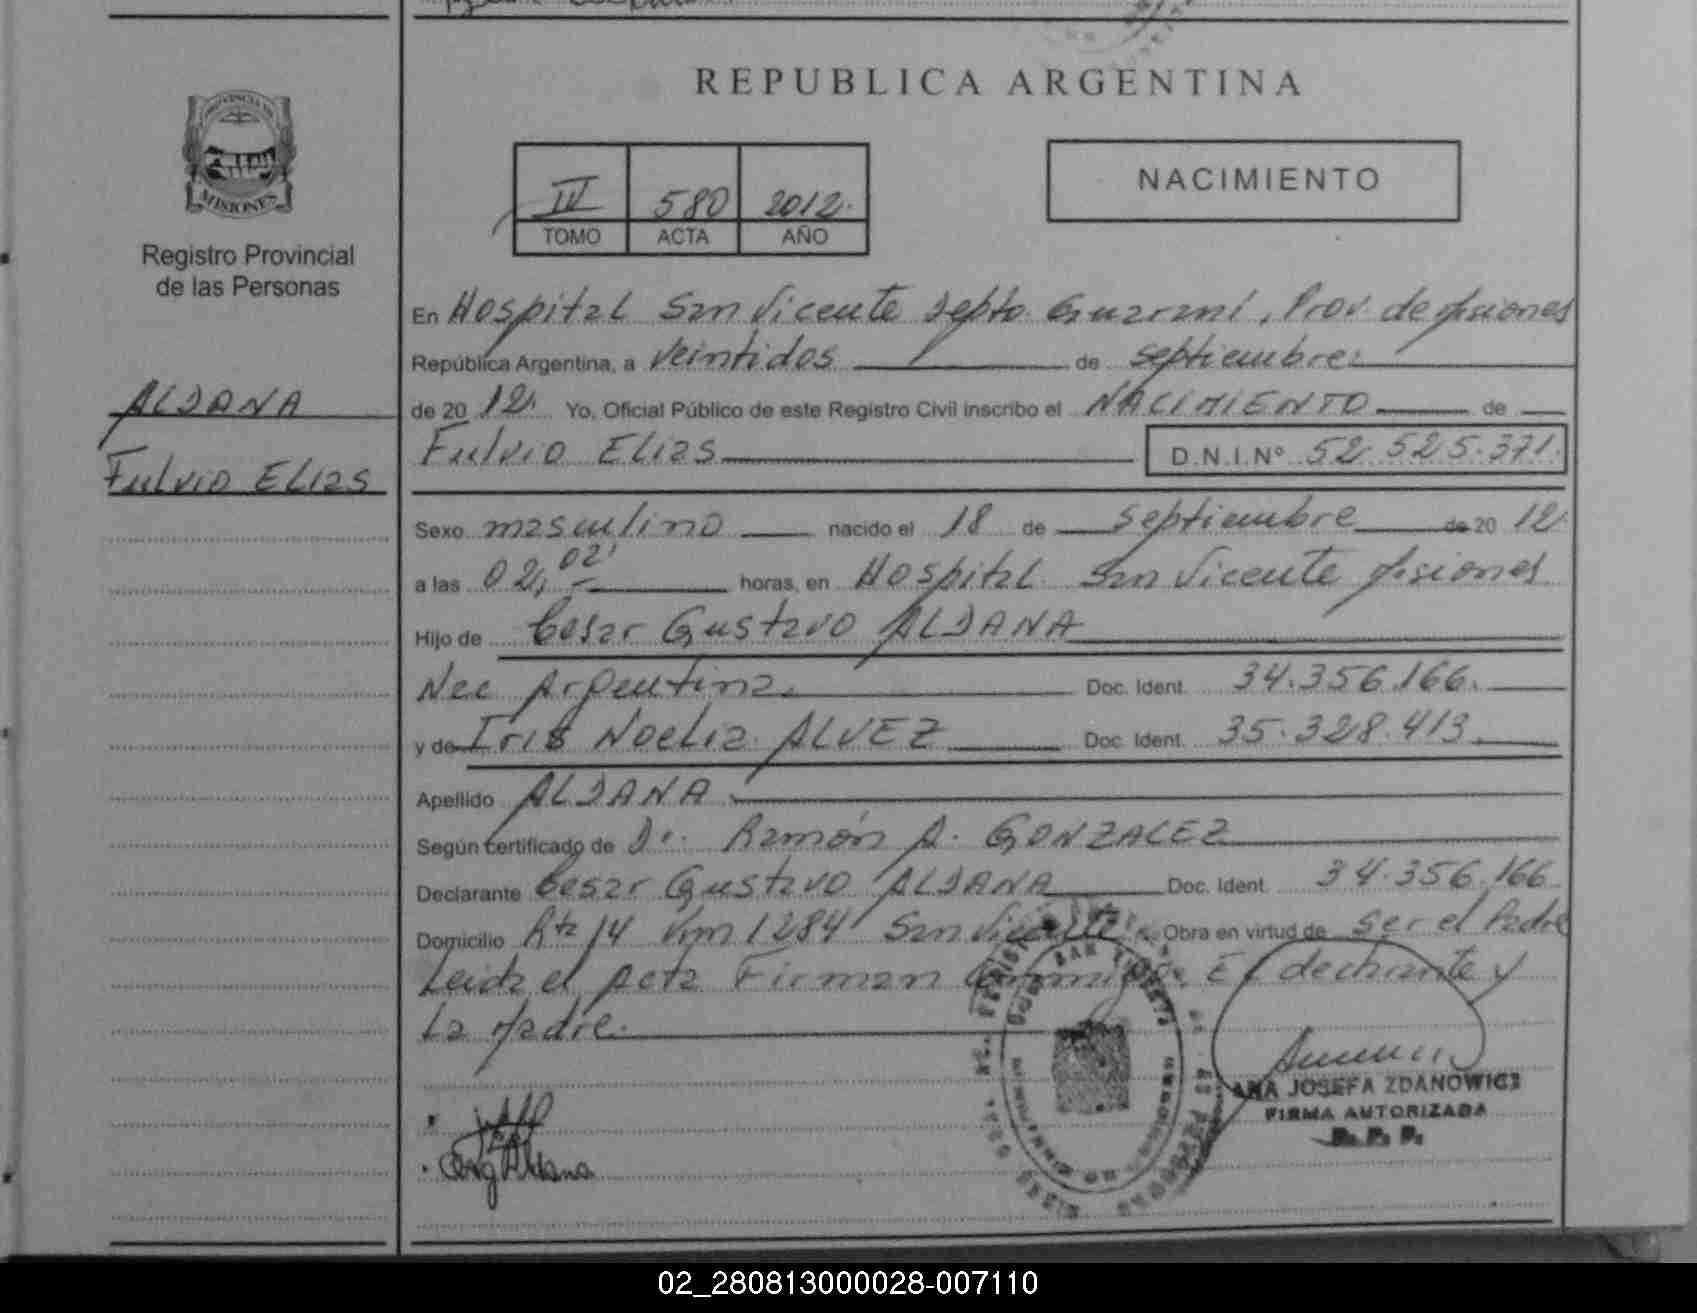 REPUBLICA ARGENTINA
PROVINCIA DE
MISIONES
Registro Provincial
de las Personas
IV 580 2012.
TOMO ACTA AÑO
NACIMIENTO
En Hospital San Vicente Depto. Guaraní, Prov. de Misiones
República Argentina, a veintidos de septiembre.
de 20 12. Yo, Oficial Público de este Registro Civil inscribo el NACIMIENTO de
Fulvio Elias D.N.I.Nº 52.525.371.
ALDANA
Fulvio Elias
Sexo masculino nacido el 18 de septiembre de 20 12.
a las 02,02' horas, en Hospital San Vicente Misiones
Hijo de Cesar Gustavo ALDANA
Nac Argentina. Doc. Ident. 34.356.166.
y de Iris Noelia ALVEZ Doc. Ident. 35.328.413.
Apellido ALDANA
Según certificado de Dr. Ramón A. GONZALEZ
Declarante Cesar Gustavo ALDANA Doc. Ident. 34.356.166
Domicilio Rta 14 Km 1284 San Vicente. Obra en virtud de ser el Padre
Leida el Acta Firman Conmigo El declarante y
La Madre.
SAN VICENTE
ANA JOSEFA ZDANOWICZ
FIRMA AUTORIZADA
R. P. P.
02_280813000028-007110